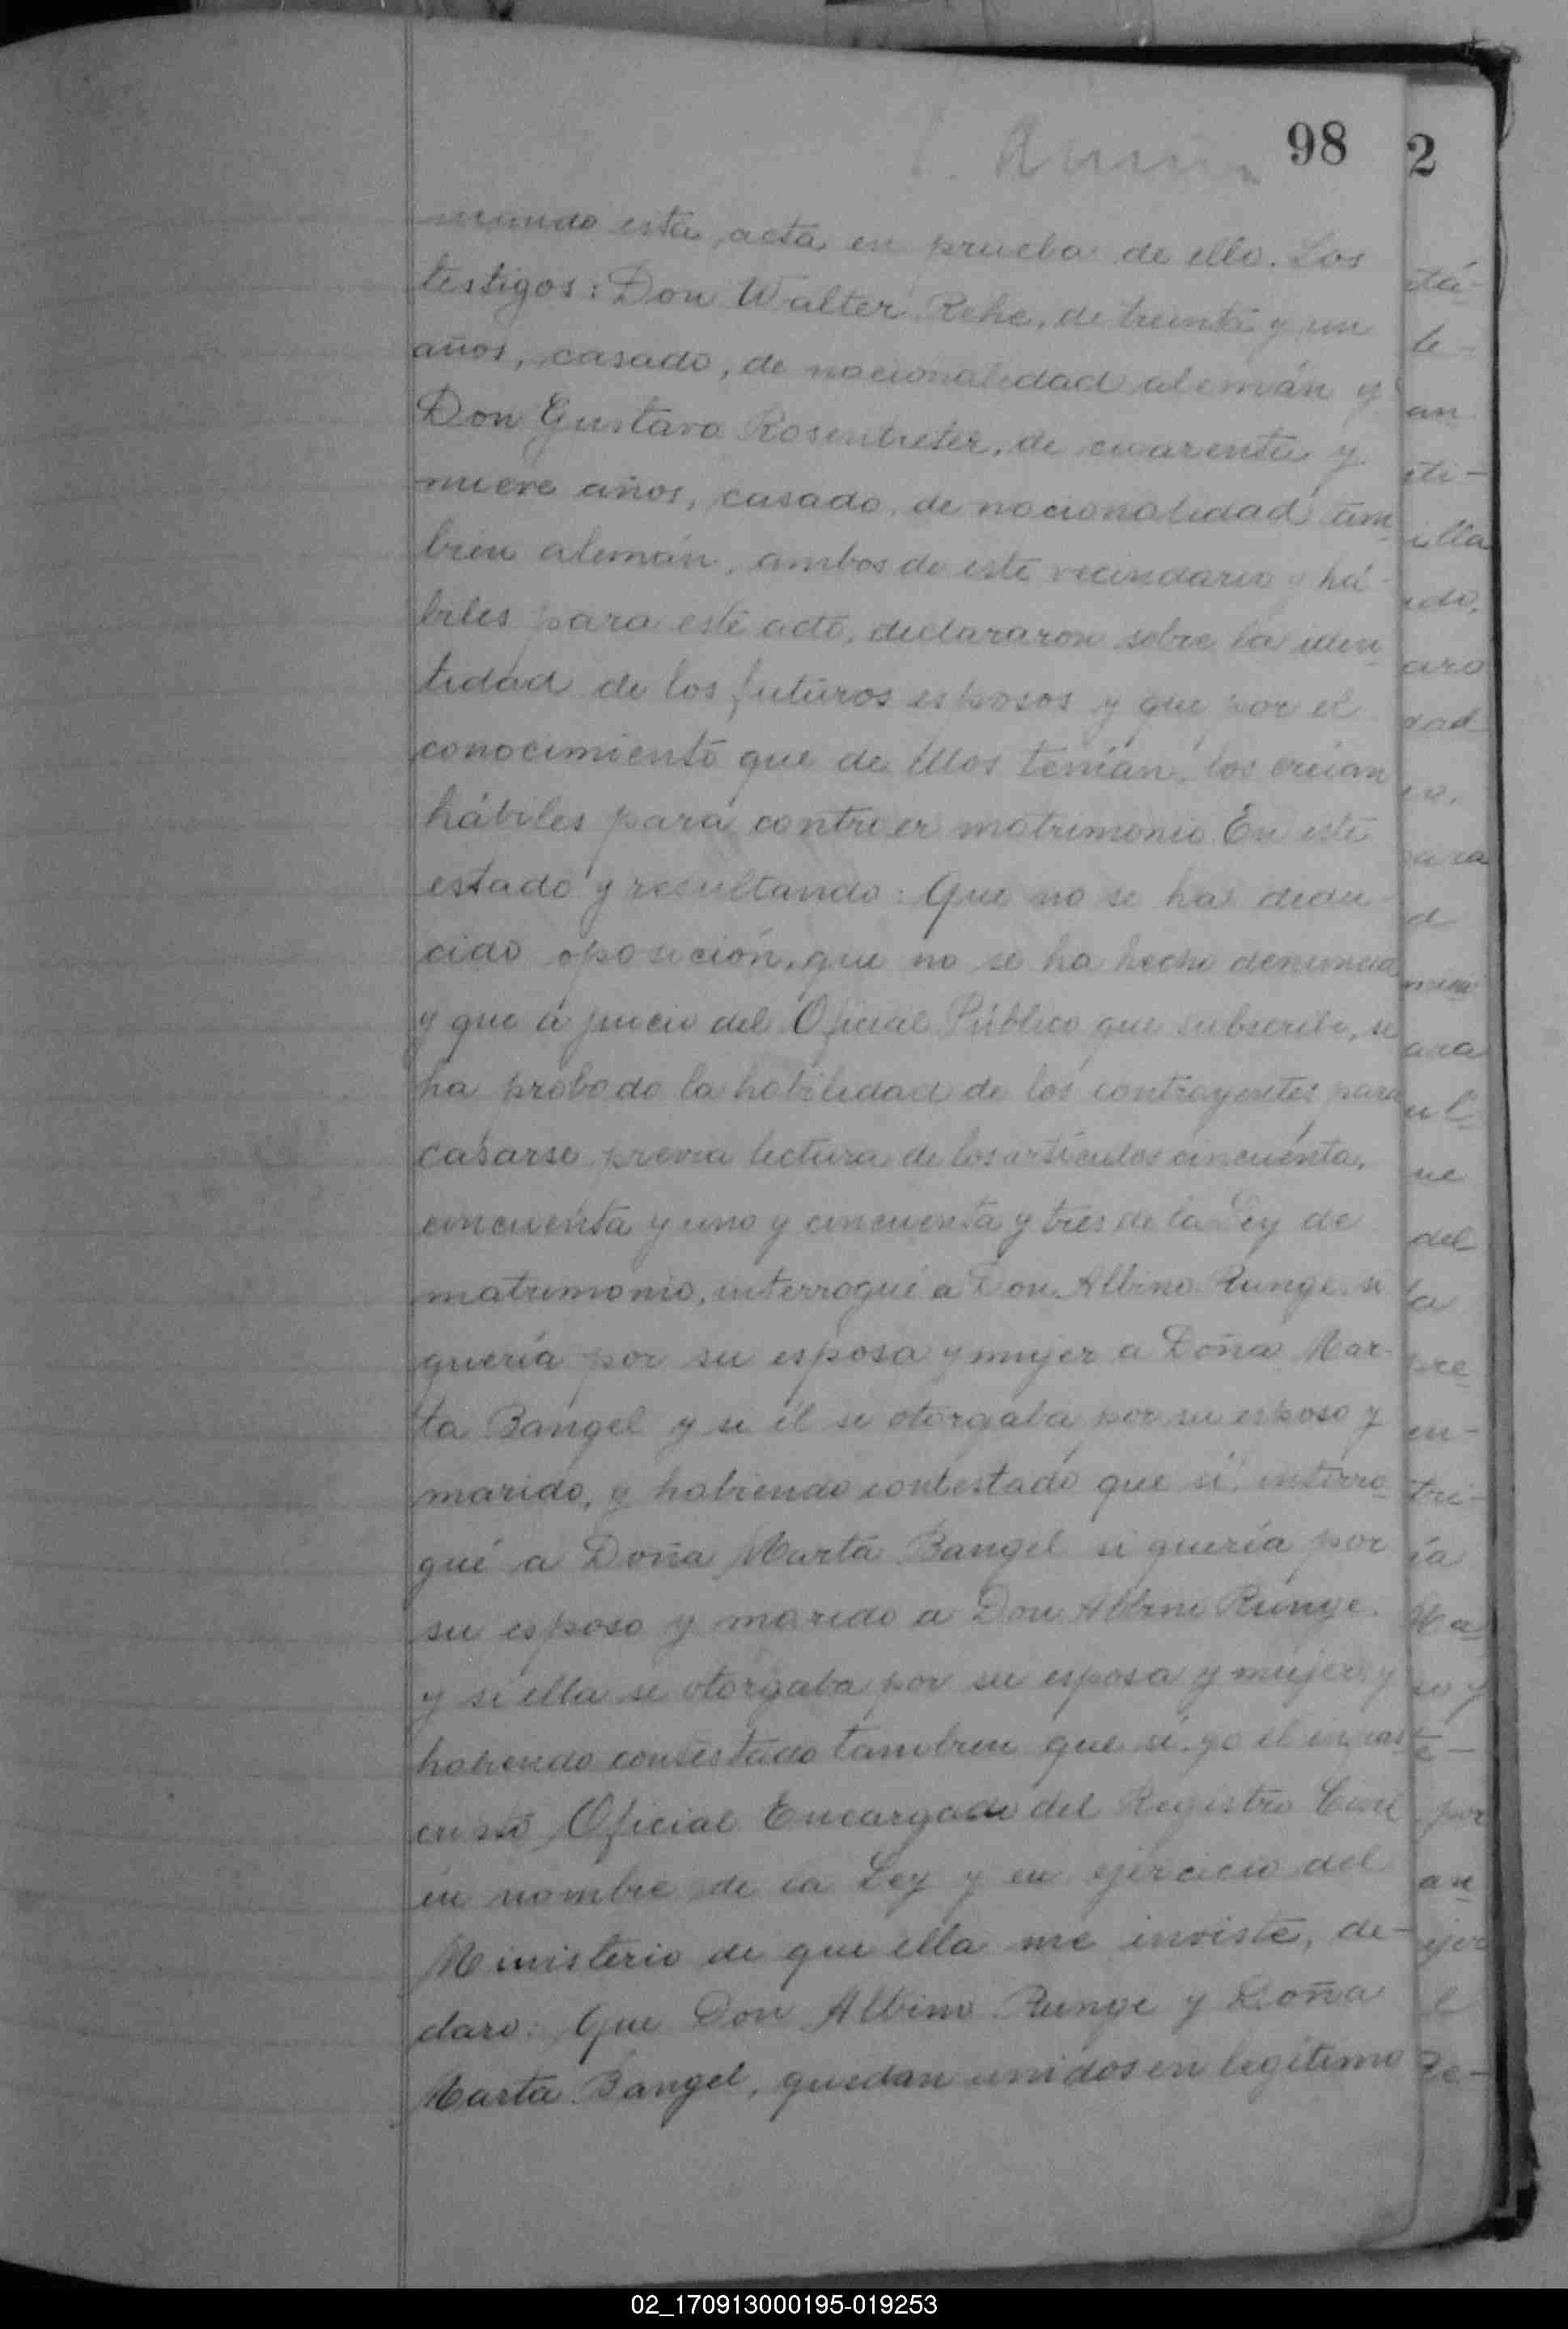 98
2
mando esta acta en prueba de ello. Los
testigos: Don Walter Rehe, de treinta y un
años, casado, de nacionalidad alemán y
Don Gustavo Rosentreter, de cuarenta y
nueve años, casado, de nacionalidad tam
bien alemán, ambos de este vecindario y há-
biles para este acto, declararon sobre la iden
tidad de los futuros esposos y que por el
conocimiento que de ellos tenían, los creían
hábiles para contraer matrimonio. En este
estado y resultando: Que no se ha dedu-
cido oposición, que no se ha hecho denuncia
y que a juicio del Oficial Público que subscribe, se
ha probado la habilidad de los contrayentes para
casarse previa lectura de los artículos cincuenta,
cincuenta y uno y cincuenta y tres de la Ley de
matrimonio, interrogué a Don Albino Runge si
quería por su esposa y mujer a Doña Mar-
ta Bangel y si él se otorgaba por su esposo y
marido, y habiendo contestado que sí, interro
gué a Doña Marta Bangel si quería por
su esposo y marido a Don Albino Runge
y si ella se otorgaba por su esposa y mujer, y
habiendo contestado tambien que sí, yo el infras
crito Oficial Encargado del Registro Civil
en nombre de la Ley y en ejercicio del
Ministerio de que ella me inviste, de-
claro: Que Don Albino Runge y Doña
Marta Bangel, quedan unidos en legítimo
02_170913000195-019253